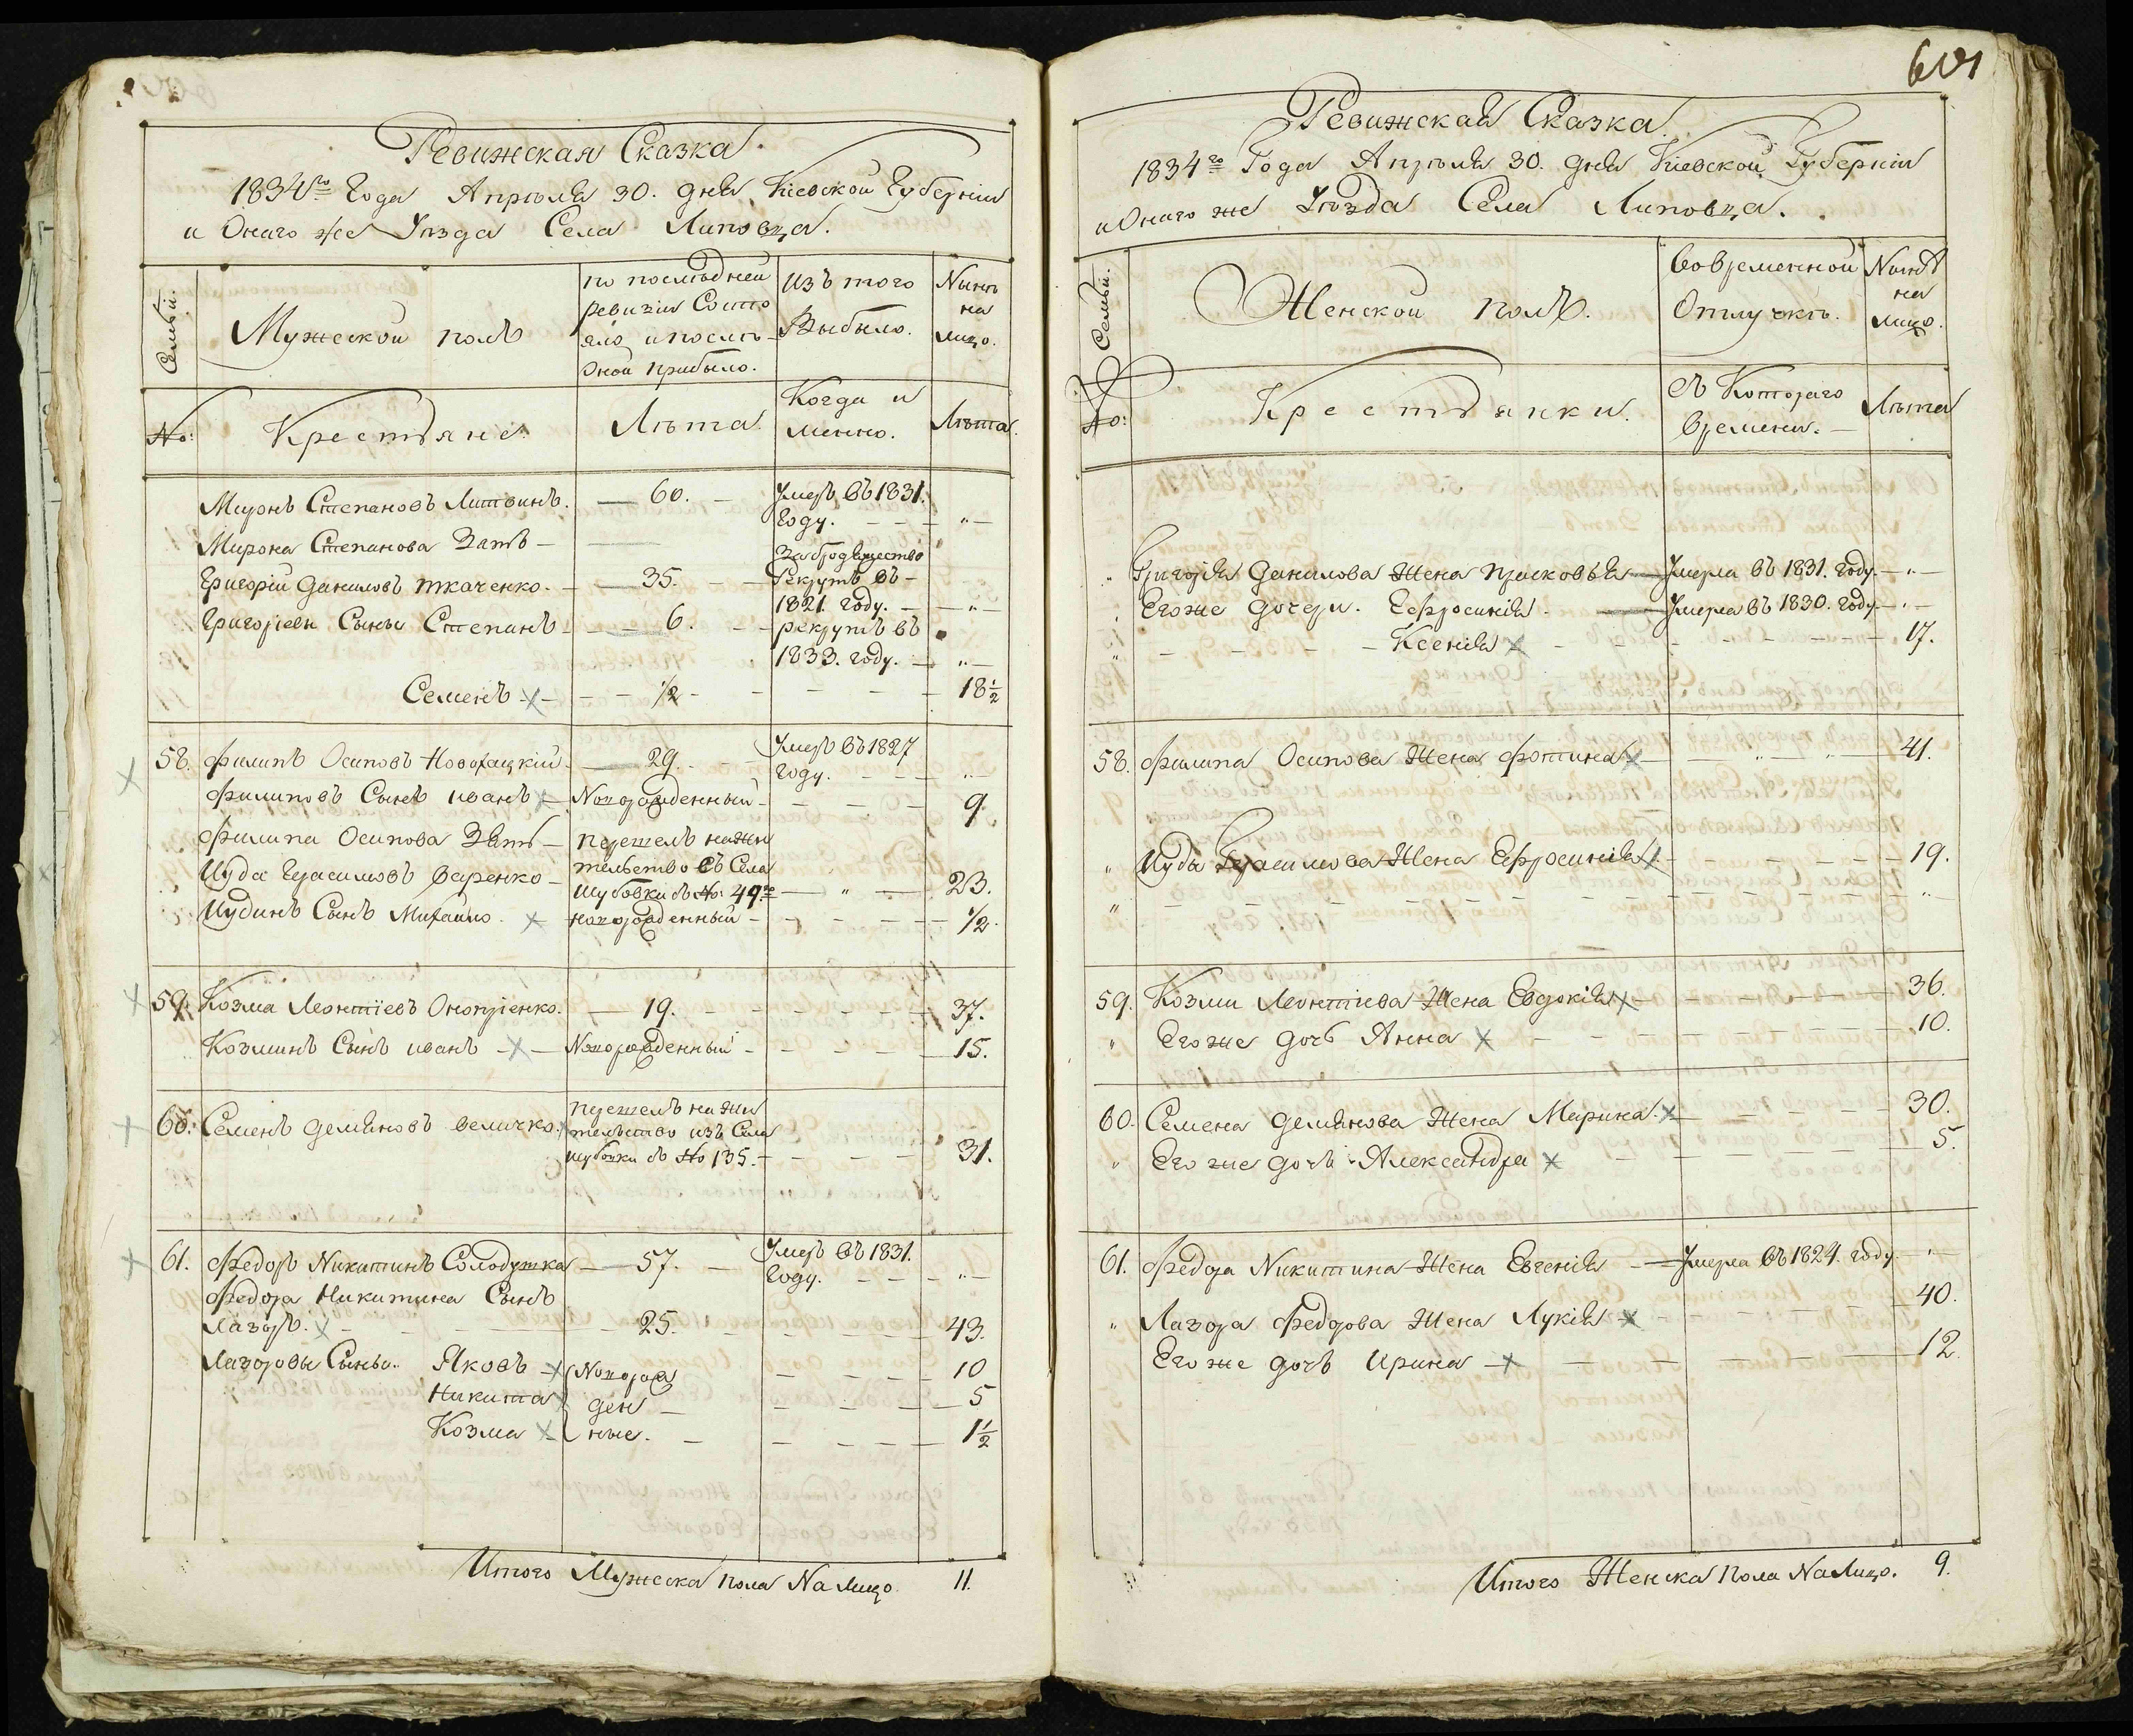 Ревижская Сказка.
1834го Года Апрѣля 30. дня Кіевской Губерніи
и Онаго же Уѣзда Села Липовца.
Семьи.
Мужеской полъ
по послѣдней
ревизіи Состо
яло, и послѣ
Оной прибыло.
Изъ того
Выбыло.
Нынѣ
на
лицо.
No:
Крестьяне.
Лѣта.
Когда и
менно.
Лѣта.
Миронъ Степановъ Литвинъ. — 60. — Умеръ въ 1831.
Году. — — „ —
Мирона Степанова Зять —
За бродяжество
Григорій Даниловъ Ткаченко. — 35. — Рекрутъ въ —
1821. году. — „ —
Григоріевы Сыны Степанъ — 6. — рекрутъ въ
1833. году. — „ —
Семенъ × — ½ — — — 18½
58. Филипъ Осиповъ Новохацкій. — 29. — Умеръ въ 1827
Году. — „ —
Филиповъ Сынъ иванъ × — Новорожденный — — — 9.
Филипа Осипова Зять — перешелъ на жи
тельство съ Села
Иуда Герасимовъ варенко — Шубовки съ No 49го — „ — 23.
Иудинъ Сынъ Михайло. × — новорожденный — — ½.
59. Козма Леонтіевъ Онопріенко. — 19. — — — 37.
Козминъ Сынъ иванъ — × — Новорожденный — — — 15.
60. Семенъ демяновъ величко. × перешелъ на жи
тельство изъ Села
шубовки съ No 135. — — — 31.
61. Федоръ Никитинъ Солодушка — 57. — Умеръ въ 1831.
Году. — — „ —
Федора Никитина Сынъ
Лазоръ. × — — 25. — — — 43.
Лазоровы Сыны. Яковъ — × Новорож — — — 10
Никита × ден — — — 5
Козма × ные. — — — 1½
Итого Мужеска пола На лицо. 11.
601
Ревижская Сказка.
1834го Года Апрѣля 30. дня Кіевской Губерніи
и Онаго же Уѣзда Села Липовца.
Семьи.
Женской полъ.
Во временной
Отлучкѣ.
Нынѣ
на
лицо.
No:
Крестьянки.
Съ Котораго
времени. —
Лѣта
„ Григорія Данилова Жена Прасковья — Умерла въ 1831. году. — „ —
„ Его же дочери. Ефросинія. — Умерла въ 1830. году — „ —
„ — — — — Ксенія × — — — 17.
58. Филипа Осипова Жена Фотина × — „ — „ — 41.
„ Иуды Герасимова Жена Ефросинія × — — — 19.
„ — — — — — — „
59. Козми Леонтіева Жена Евдокія × — — — 36.
„ Его же дочь Анна × — — — 10.
60. Семена демянова Жена Марина. × — — — 30.
„ Его же дочь Александра × — — — 5.
61. Федора Никитина Жена Евгенія — Умерла въ 1824. году. — „ —
„ Лазора Федорова Жена Лукія × — — — 40.
Его же дочь Ирина — × — — — 12.
Итого Женска Пола На Лицо. 9.